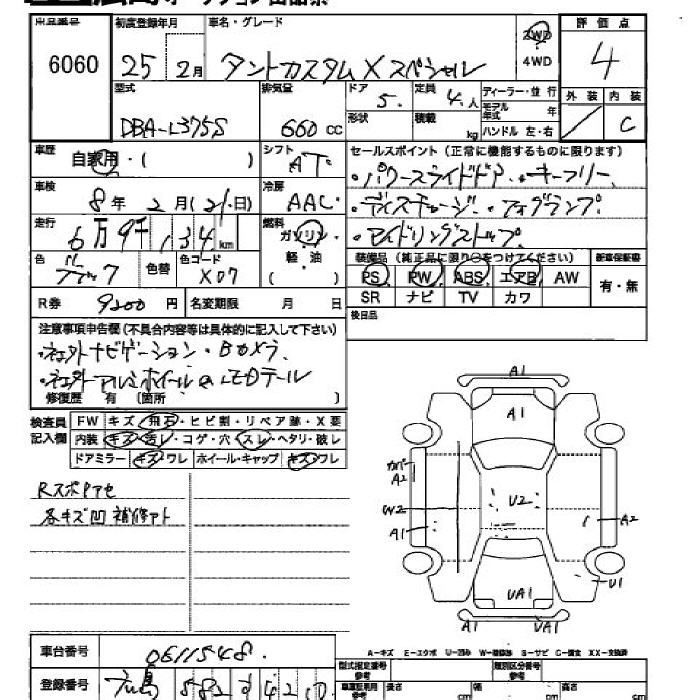 出品番号 6060
初度登録年月 25 2月
車名・グレード タントカスタム X スペシャル
2WD
4WD
評価点 4
外装 内装 C
型式 DBA-L375S
排気量 660 cc
ドア 5. 定員 4.人
形状 積載 kg
ディーラー・並行
モデル年式 年
ハンドル 左・右
車歴 自家用・( )
シフト AT
セールスポイント (正常に機能するものに限ります)
・パワースライドドア ・キーフリー
・ディスチャージ ・フォグランプ
・アイドリングストップ
車検 8年 2月(21日)
冷房 AAC
走行 6万9千134km
燃料 ガソリン
軽・油
( )
色 ブラック 色替 色コード X07
装備品 (純正品に限り○をつけてください) 新車保証書
PS PW ABS エアB AW 有・無
SR ナビ TV カワ
R券 9200円 名変期限 月 日
後日品
注意事項申告欄 (不具合内容等は具体的に記入して下さい)
・社外ナビゲーション・Bカメラ
・社外アルミホイール LEDテール
修復歴 有 (箇所 )
検査員記入欄
FW キズ・飛石・ヒビ割・リペア跡・X要
内装 キズ・汚レ・コゲ・穴・スレ・ヘタリ・破レ
ドアミラー キズ・ワレ ホイール・キャップ キズ・ワレ
RスポPアセ
各キズ凹 補修アト
A1
A1
カバー
A2
W2
A1
U2
A2
U1
UA1
A1 UA1
車台番号 0611548
A-キズ E-エクボ U-凹み W-補修跡 S-サビ C-腐食 XX-交換済
型式指定番号 参考 類別区分番号 参考
登録番号 広島 582
長さ cm 幅 cm 高さ cm